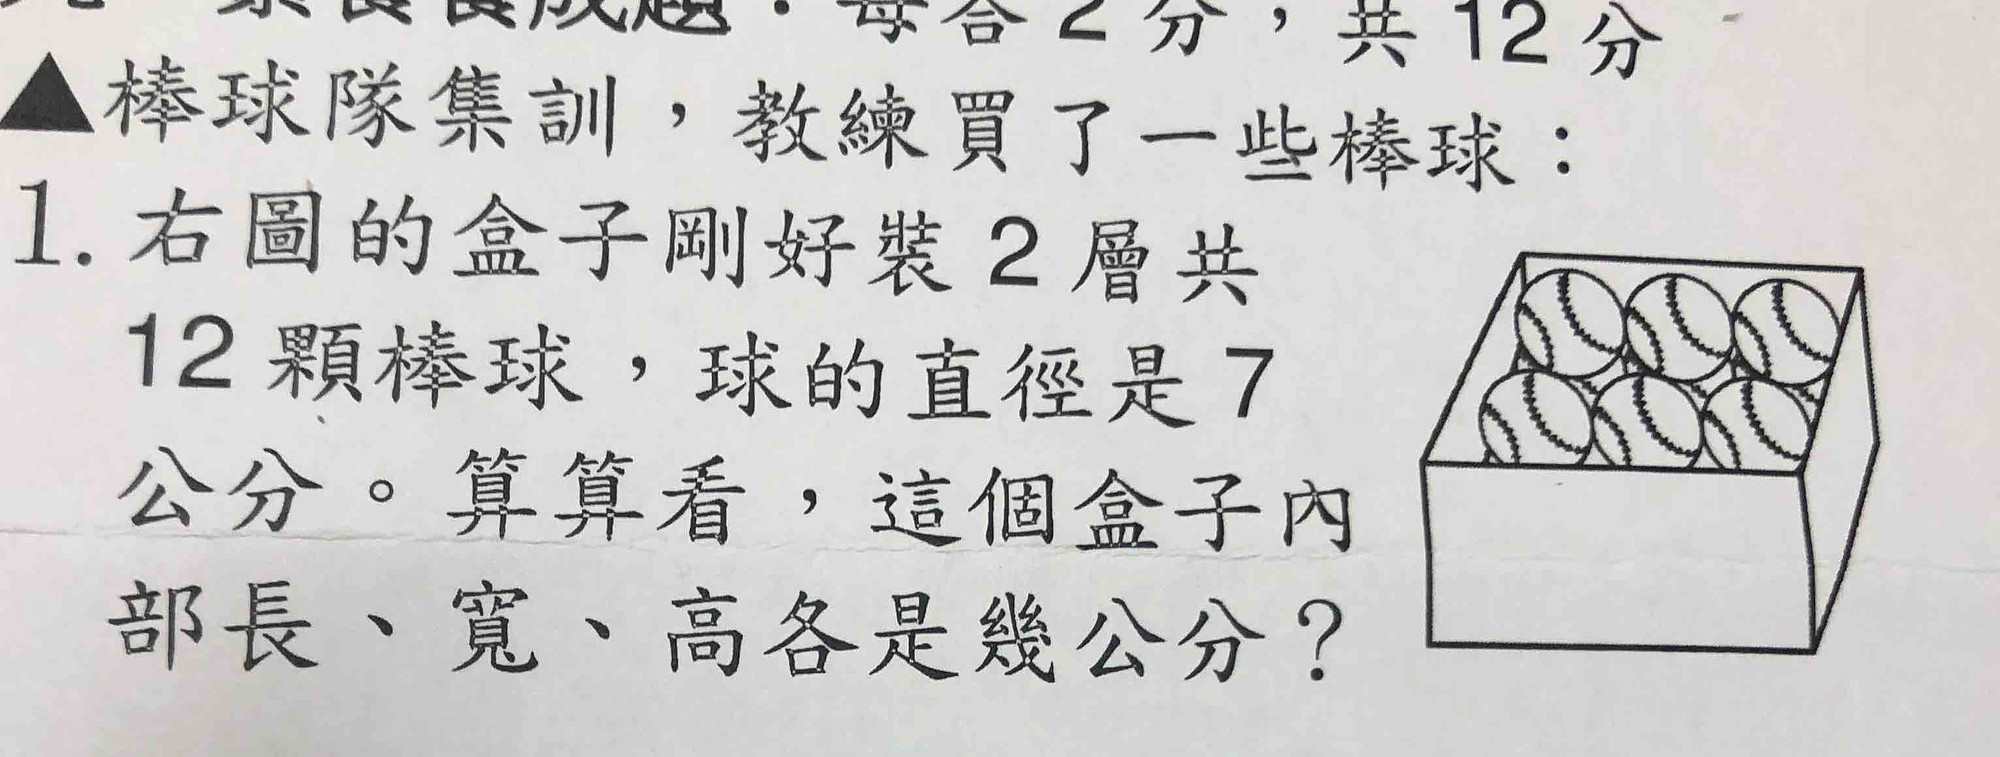 素養養成題：每答2分，共12分
▲棒球隊集訓，教練買了一些棒球：
1. 右圖的盒子剛好裝2層共
12顆棒球，球的直徑是7
公分。算算看，這個盒子內
部長、寬、高各是幾公分？